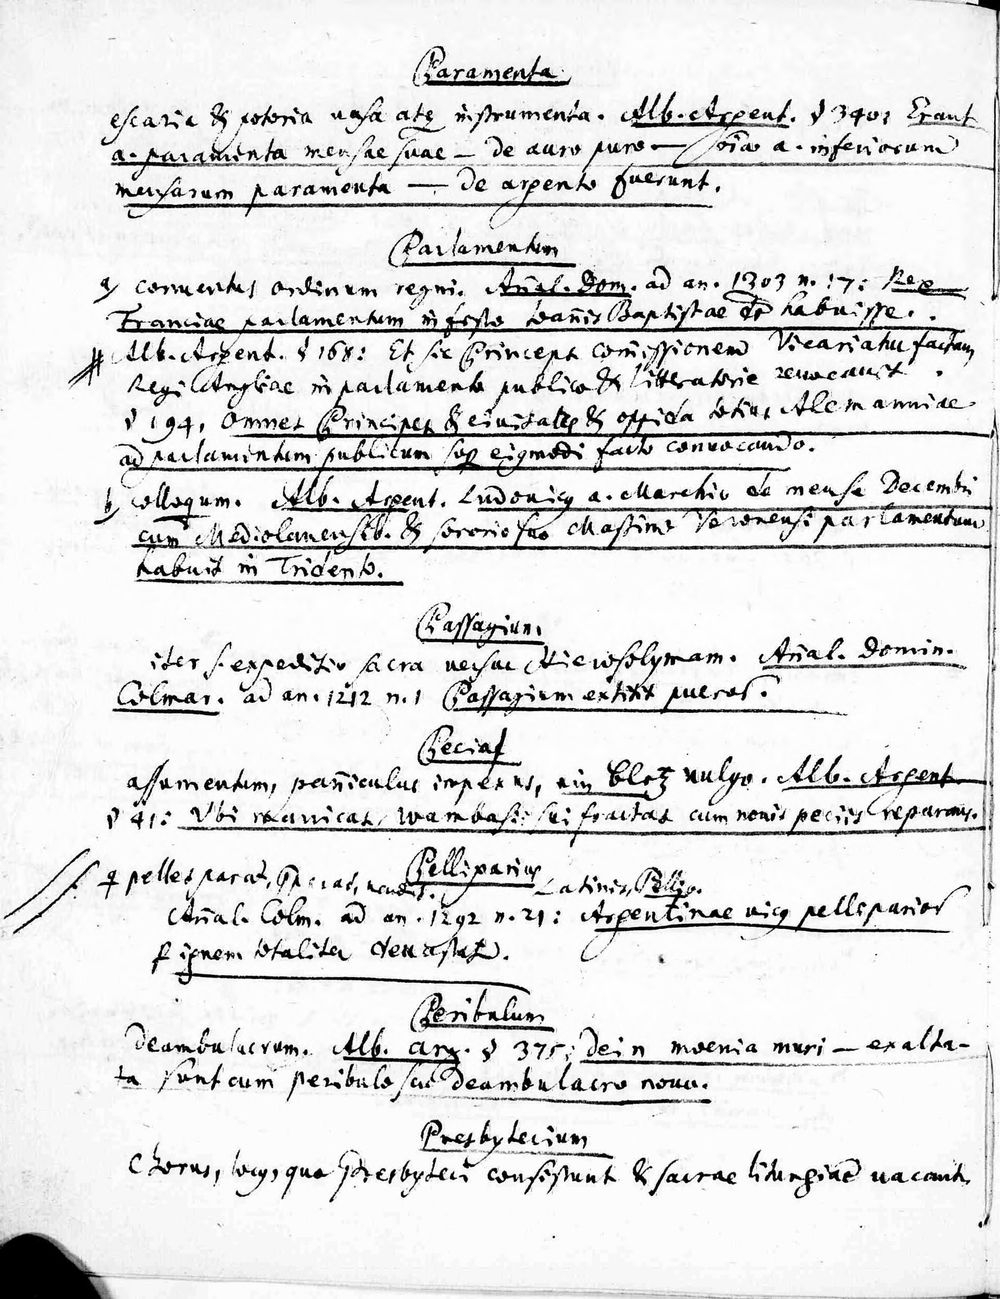 Paramenta.
escaria & potoria vasa atq instrumenta. Alb. Argent. § 340: Erant
a. paramenta mensae suae — de auro puro — a. inferiorum
mensarum paramenta — de argento fuerunt.
Parlamentum
a) conventus ordinum regni. Añal. Dom. ad an. 1303 n. 17: Rex
Franciae parlamentum in festo Ioañis Baptistae habuisse.
Alb. Argent. § 168: Et sic Princeps comissionem Vicariatus factam
Regi Angliae in parlamento publico & litteratorie revocavit.
§ 194. Omnes Principes & civitates & oppida totius Alemanniae
ad parlamentum publicum sup eigmodi facto convocando.
b) Colloqum. Alb. Argent. Ludovicq a. Marchio de mense Decembri
cum Mediolanensib. & sororio suo Mastino Veronensi parlamentum
habuit in Tridento.
Passagium.
iter s. expeditio sacra versus Hierosolymam. Añal. Domin.
Colmar. ad an. 1212 n. 1 Passagium extitit pueros.
Pecias
assumentum, pañiculus impexus, ein Bletz vulgo. Alb. Argent
§ 41: Vbi manicas, wambasii sui fractas cum novis peciis reparans.
Pelliparius
q pelles parat, vendit. Latinis, Pellio.
Añal. Colm. ad an. 1292 n. 21: Argentinae vicq pelliparios
p ignem totaliter devastat.
Peribulum
Deambulacrum. Alb. Arg. § 375: Dein moenia muri — exalta-
ta sunt cum peribulo seu deambulacro novo.
Presbyterium
Chorus, locq, quo Presbyteri consistunt & sacrae liturgiae vacant